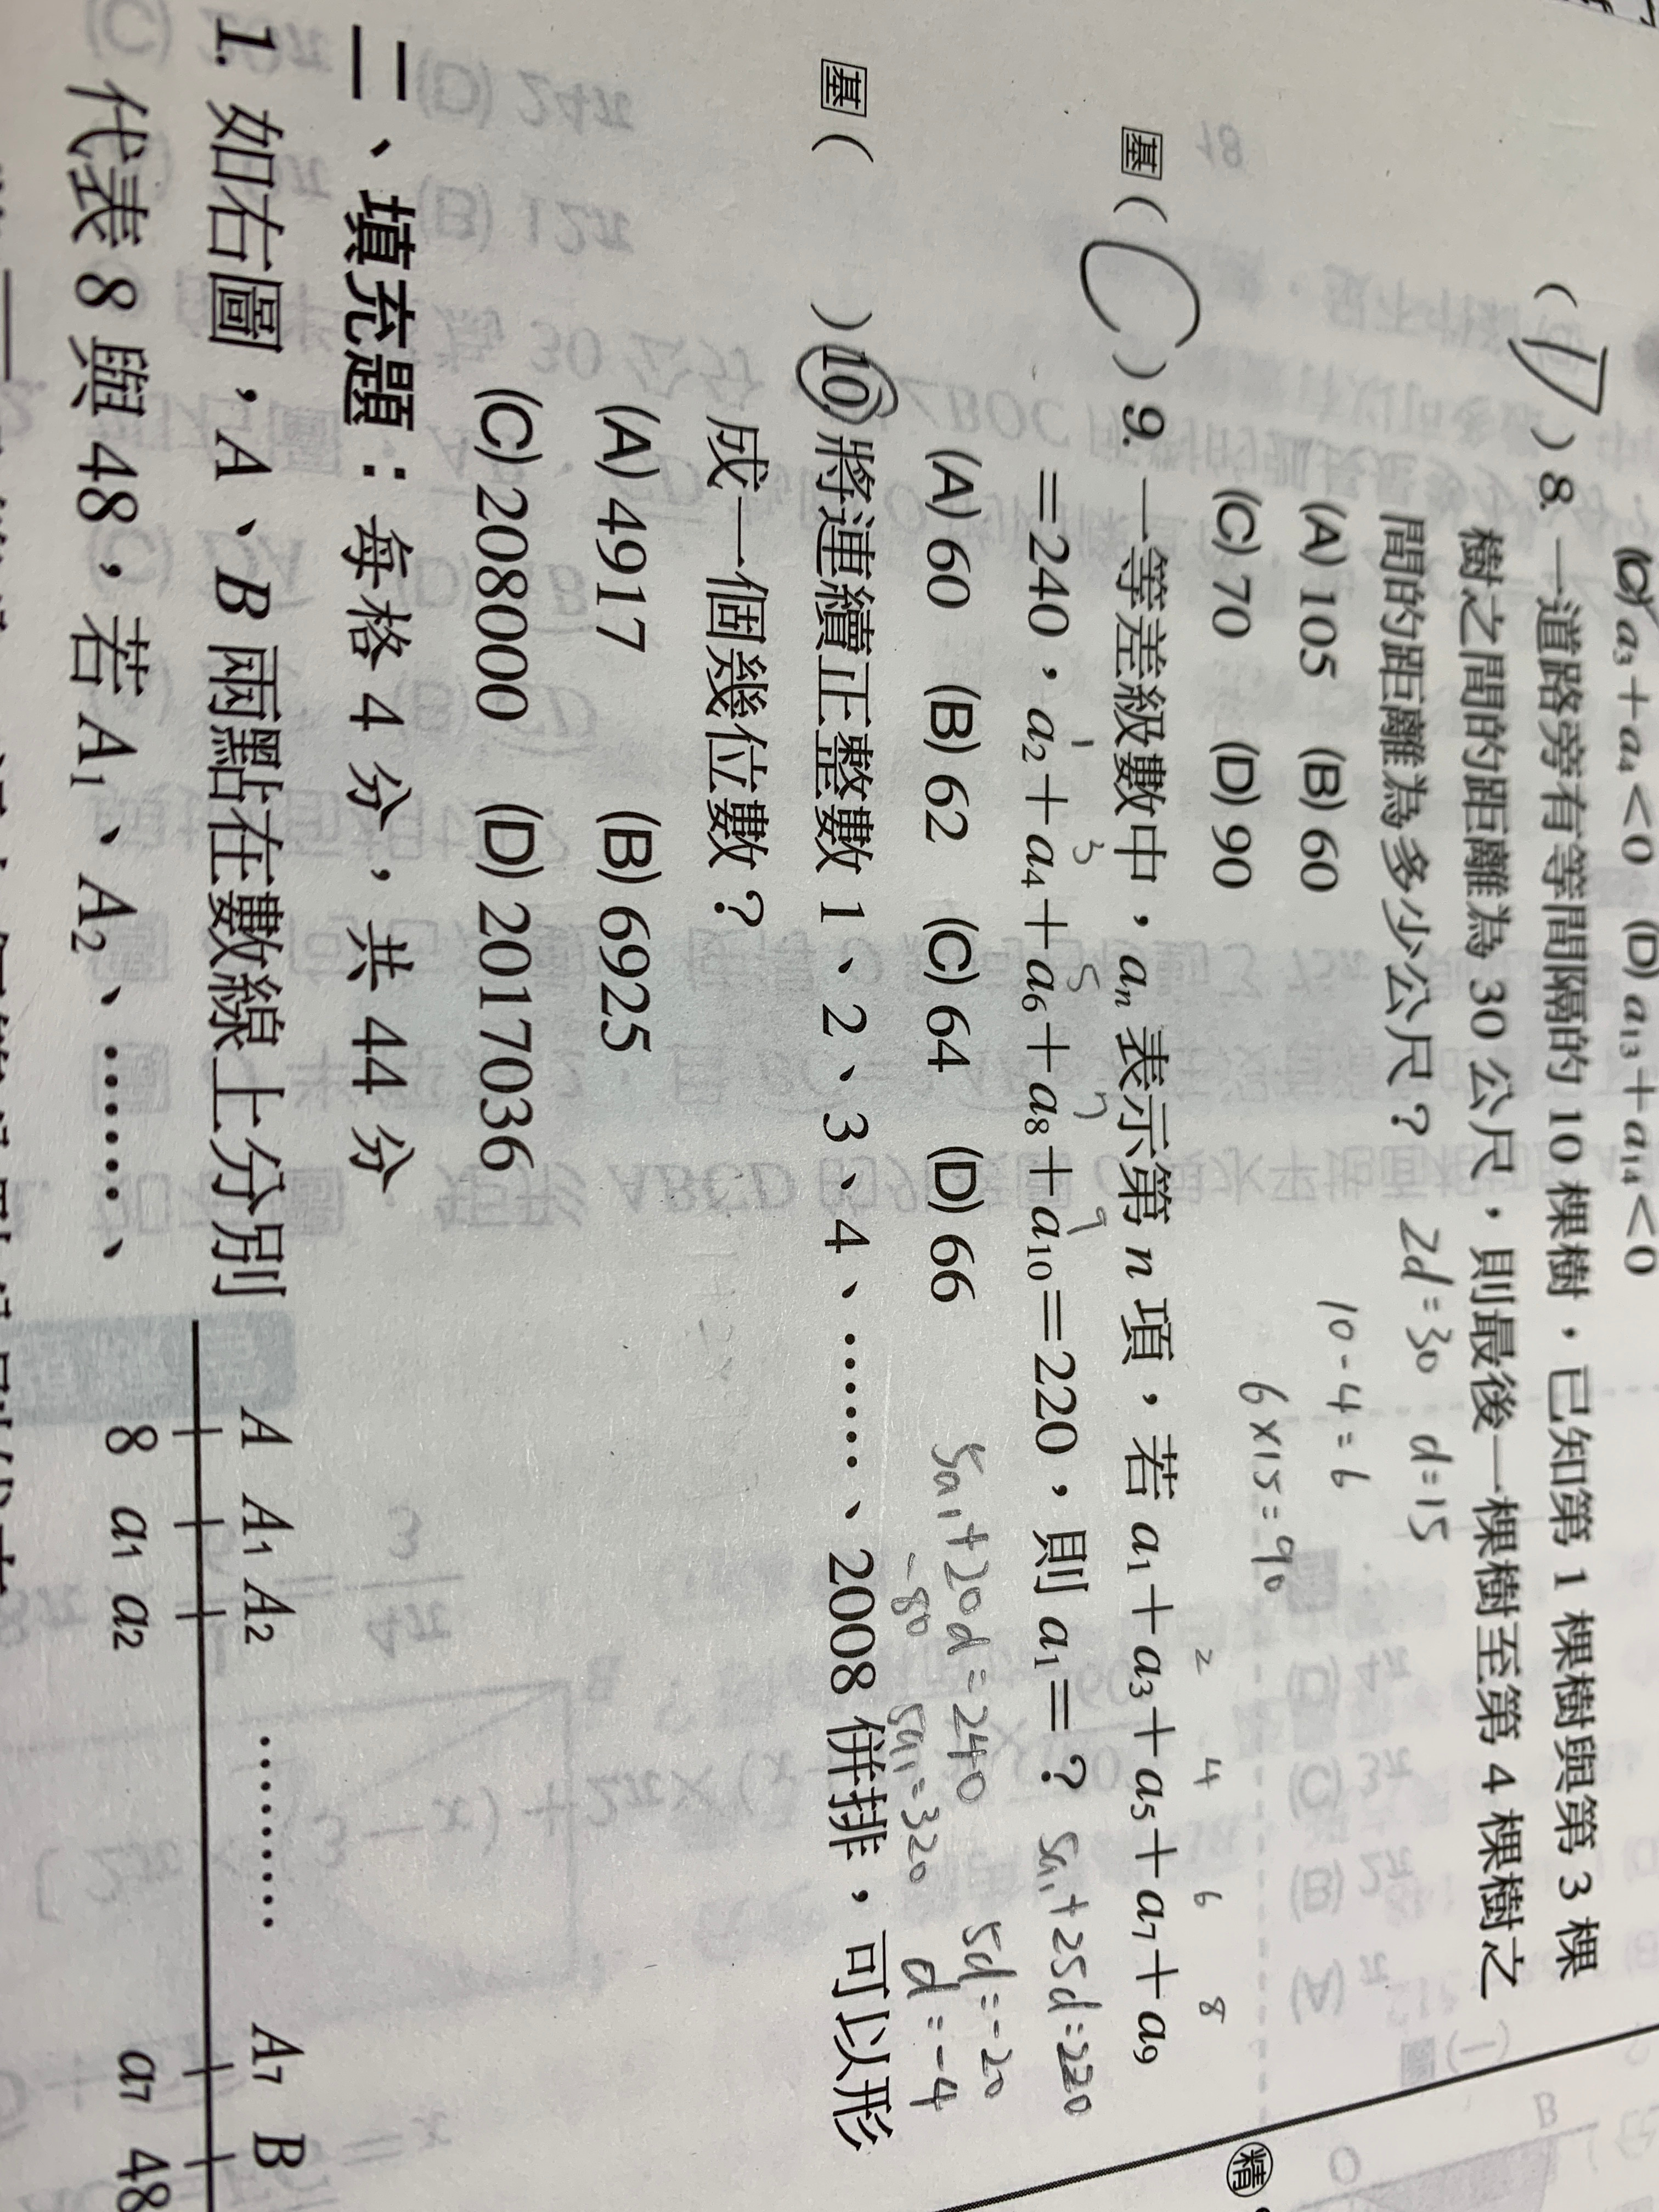 (C) a₃+a₄<0 (D) a₁₃+a₁₄<0
( D ) 8. 一道路旁有等間隔的 10 棵樹，已知第 1 棵樹與第 3 棵
樹之間的距離為 30 公尺，則最後一棵樹至第 4 棵樹之
間的距離為多少公尺？ 2d=30 d=15
(A) 105 (B) 60 10-4=6
(C) 70 (D) 90 6×15=90
2 4 6 8
基 ( C ) 9. 一等差級數中，aₙ 表示第 n 項，若 a₁+a₃+a₅+a₇+a₉
1 3 5 7 9
=240，a₂+a₄+a₆+a₈+a₁₀=220，則 a₁=？ 5a₁+25d=220
(A) 60 (B) 62 (C) 64 (D) 66 5a₁+20d=240 5d=-20
-80 5a₁=320 d=-4
基 ( ) 10. 將連續正整數 1、2、3、4、……、2008 併排，可以形
成一個幾位數？
(A) 4917 (B) 6925
(C) 208000 (D) 2017036
二、填充題：每格 4 分，共 44 分
1. 如右圖，A、B 兩點在數線上分別
代表 8 與 48，若 A₁、A₂、……、
A A₁ A₂ ……… A₇ B
8 a₁ a₂ a₇ 48
精